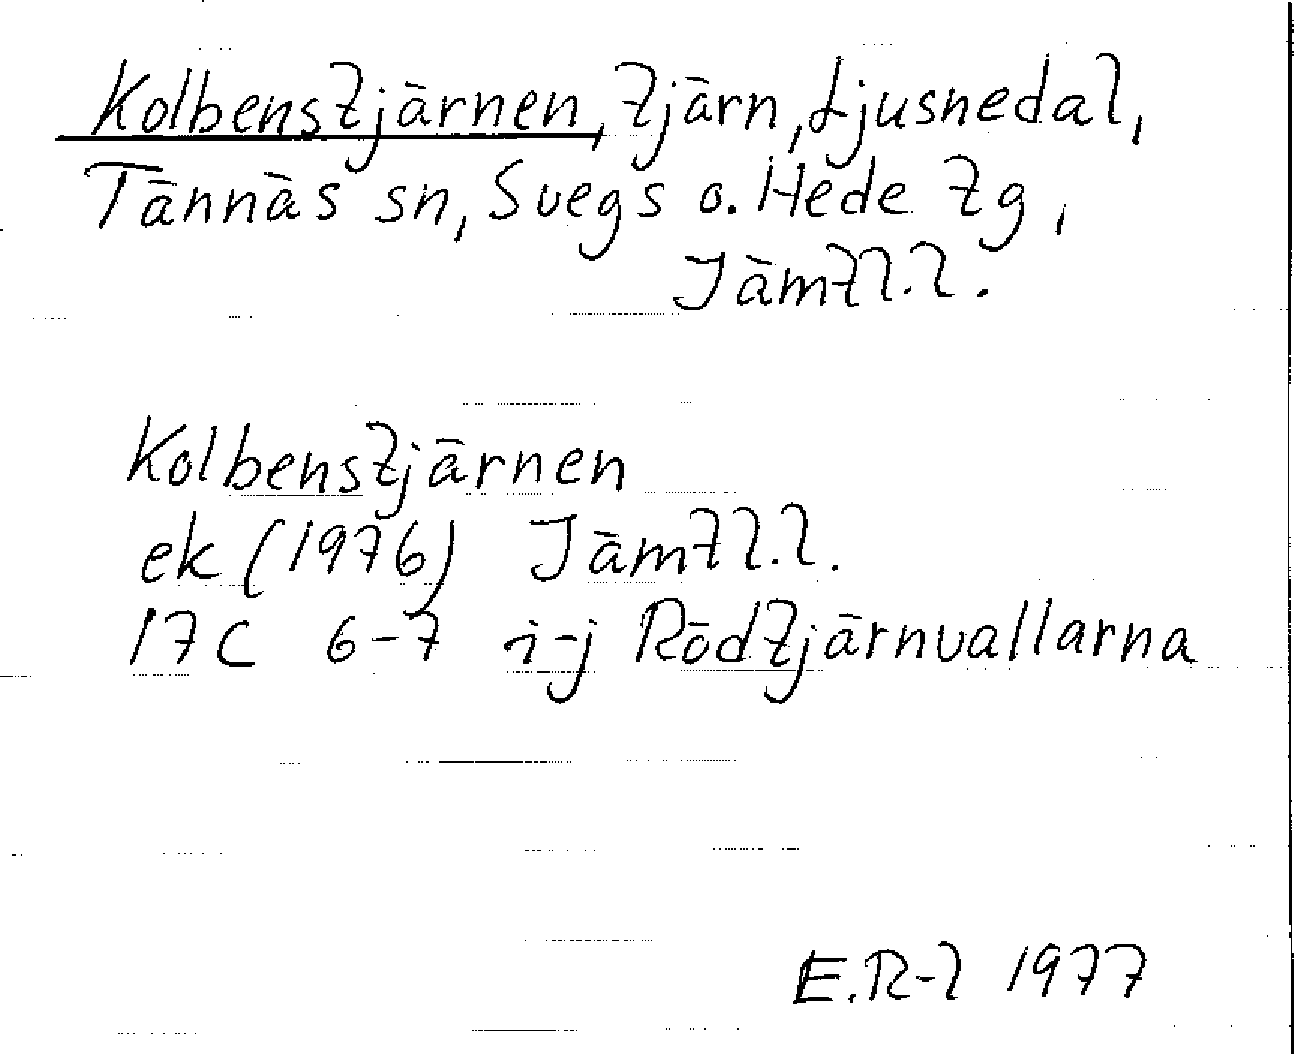 Kolbenstjärnen, tjärn, Ljusnedal,
Tännäs sn, Svegs o. Hede tg,
Jämtl.l.
Kolbenstjärnen
ek (1976) Jämtl.l.
17C 6-7 i-j Rödtjärnvallarna
E.R-l 1977